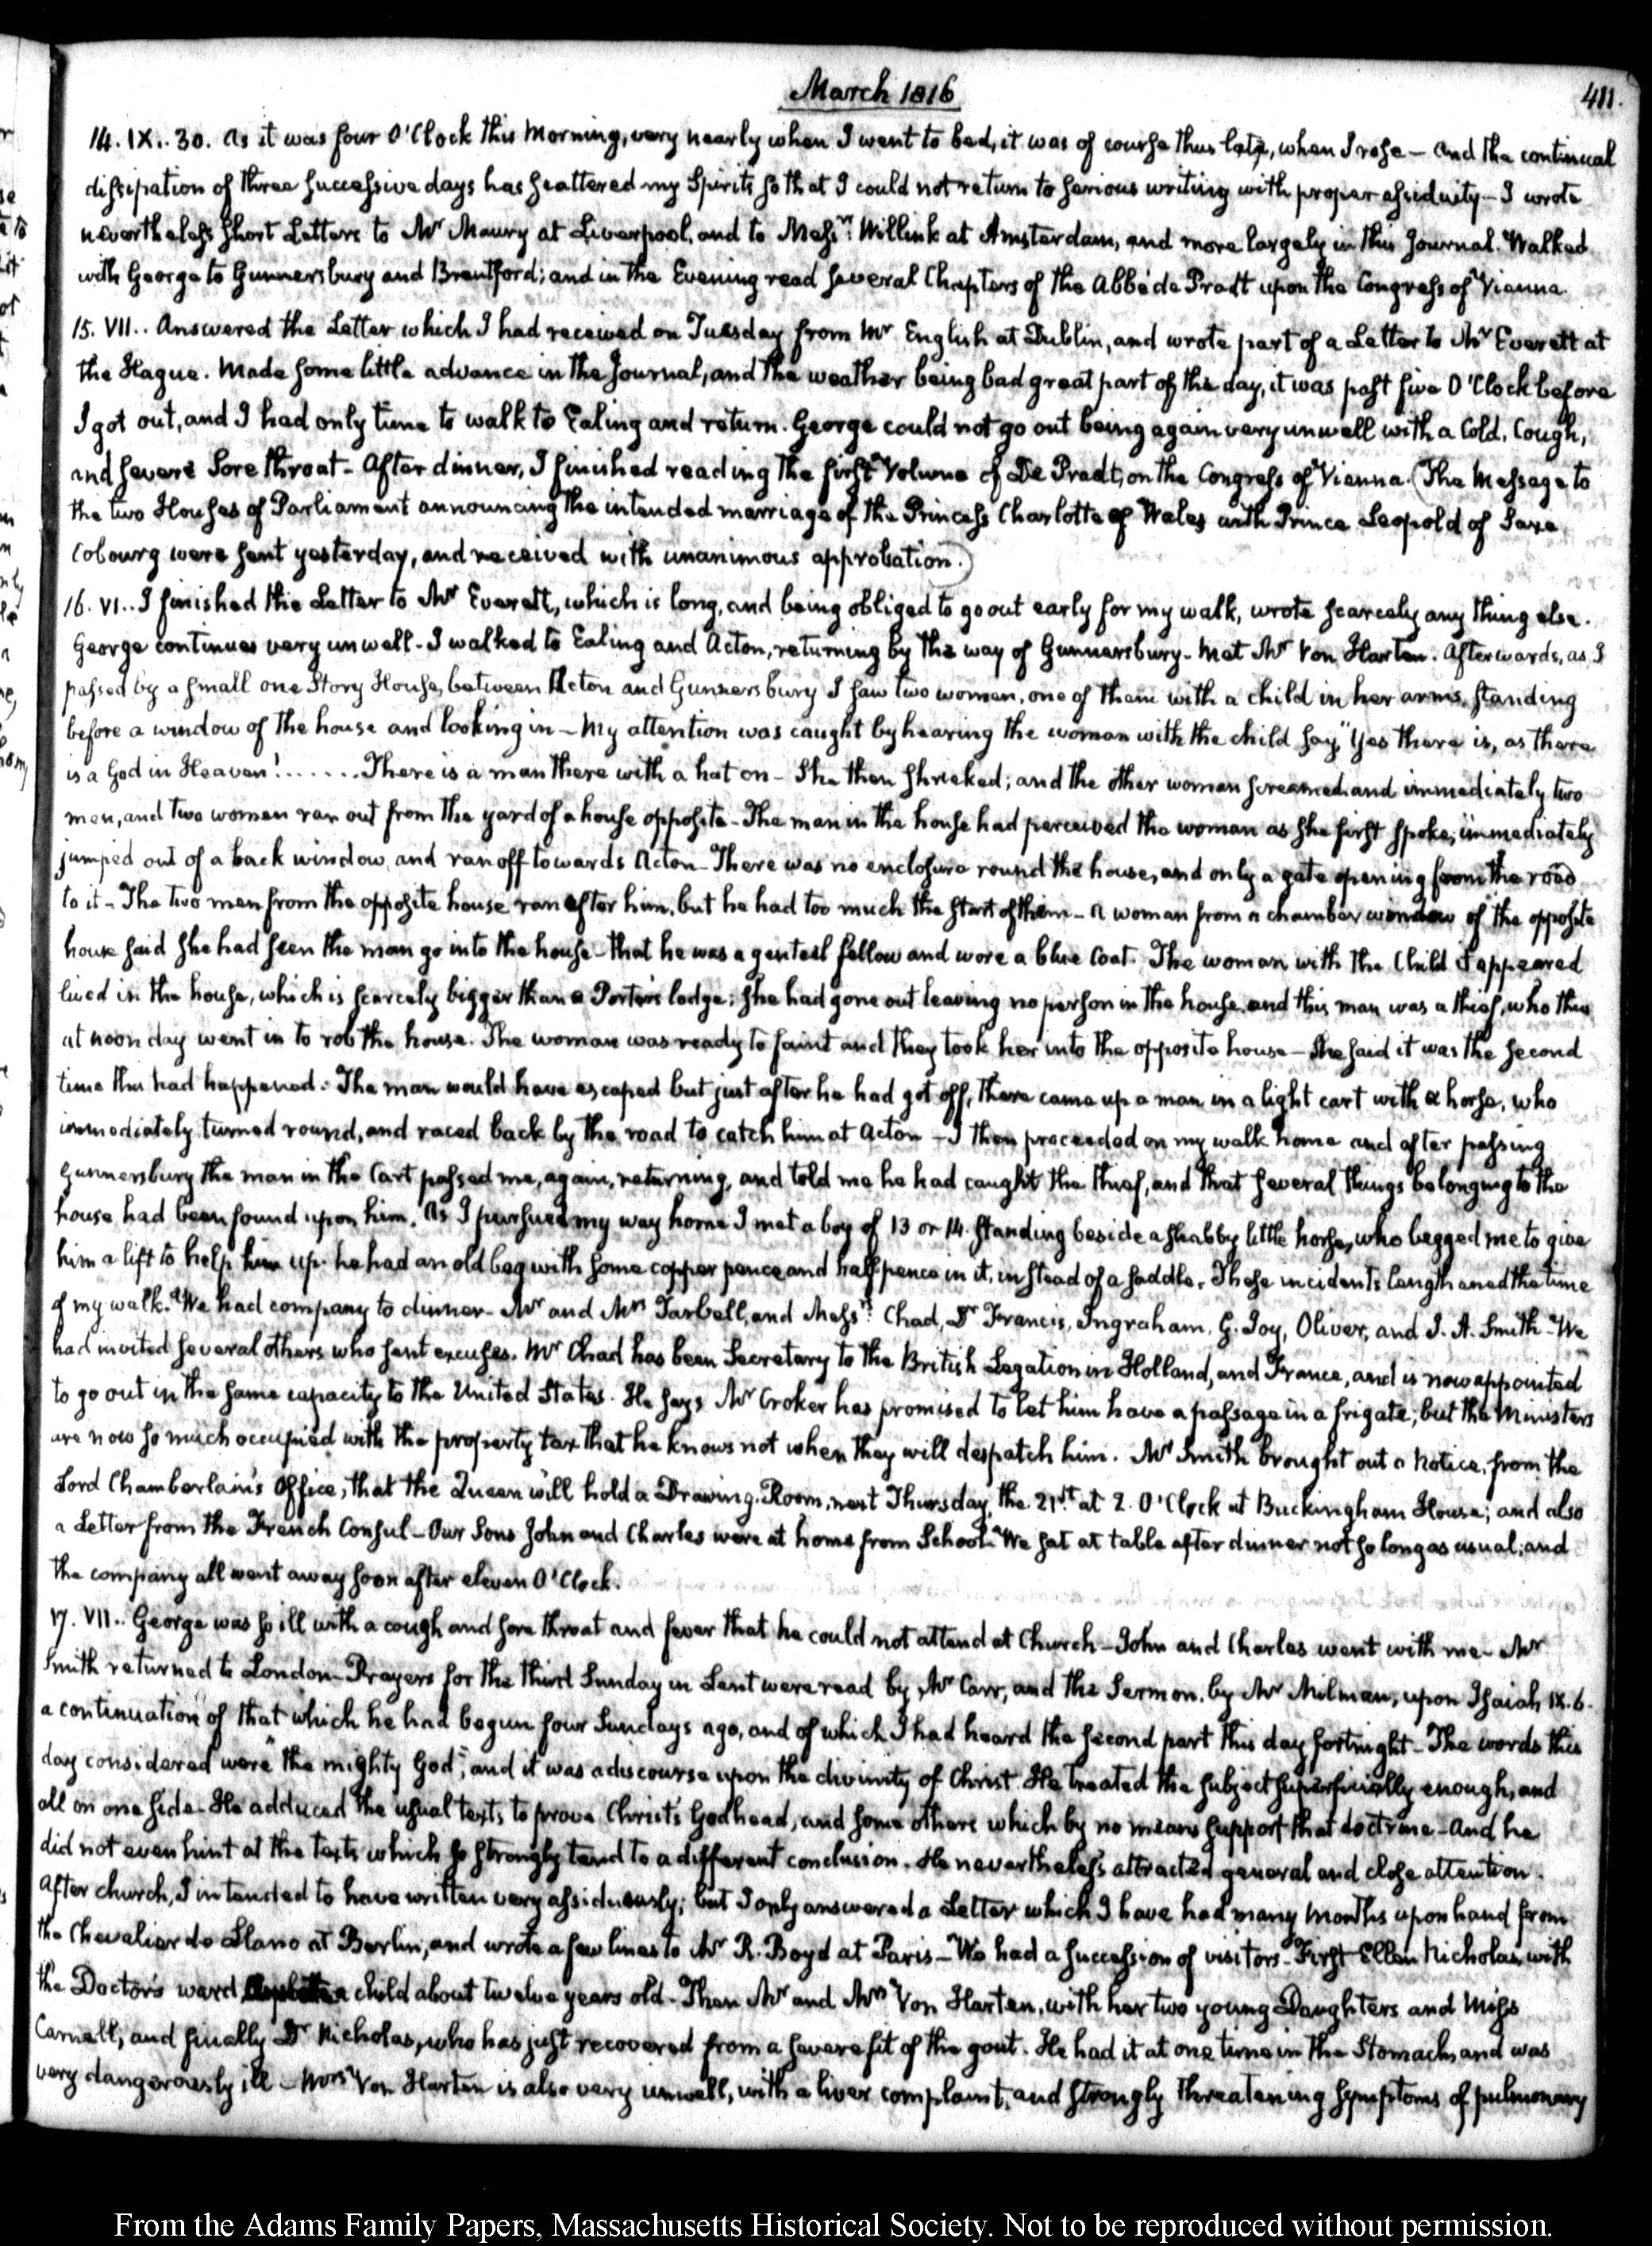 March 1816
411.
14. IX.. 30. As it was four O'Clock this Morning, very nearly when I went to bed, it was of course thus late, when I rose — and the continual
dissipation of three successive days has scattered my Spirits so that I could not return to serious writing with proper assiduity — I wrote
nevertheless short Letters to Mr Maury at Liverpool, and to Messrs: Willink at Amsterdam, and more largely in this Journal. Walked
with George to Gunnersbury and Brentford; and in the Evening read several Chapters of the Abbé de Pradt upon the Congress of Vienna.
15. VII.. Answered the Letter which I had received on Tuesday from Mr English at Dublin, and wrote part of a Letter to Mr Everett at
the Hague. Made some little advance in the Journal, and the weather being bad great part of the day, it was past five O'Clock before
I got out, and I had only time to walk to Ealing and return. George could not go out being again very unwell with a Cold, Cough,
and severe Sore throat — After dinner, I finished reading the first Volume of De Pradt, on the Congress of Vienna. (The Message to
the two Houses of Parliament announcing the intended marriage of the Princess Charlotte of Wales with Prince Leopold of Saxe
Cobourg were sent yesterday, and received with unanimous approbation.)
16. VI.. I finished the Letter to Mr Everett, which is long, and being obliged to go out early for my walk, wrote scarcely any thing else.
George continues very unwell — I walked to Ealing and Acton, returning by the way of Gunnersbury — Met Mr Von Harten. Afterwards, as I
passed by a small one Story House, between Acton and Gunnersbury I saw two women, one of them with a child in her arms, standing
before a window of the house and looking in — My attention was caught by hearing the woman with the child say, "Yes there is, as there
is a God in Heaven! . . . . . . There is a man there with a hat on — She then shrieked; and the other woman screamed and immediately two
men, and two women ran out from the yard of a house opposite — The man in the house had perceived the woman as she first spoke, immediately
jumped out of a back window, and ran off towards Acton — There was no enclosure round the house, and only a gate opening from the road
to it — The two men from the opposite house ran after him, but he had too much the start of them — A woman from a chamber window of the opposite
house said she had seen the man go into the house — that he was a genteel fellow and wore a blue Coat. The woman with the Child it appeared
lived in the house, which is scarcely bigger than a Porter's lodge; she had gone out leaving no person in the house, and this man was a thief, who thus
at noon day went in to rob the house. The woman was ready to faint and they took her into the opposite house — She said it was the second
time this had happened. The man would have escaped but just after he had got off, there came up a man in a light cart with a horse, who
immediately turned round, and raced back by the road to catch him at Acton — I then proceeded on my walk home and after passing
Gunnersbury the man in the Cart passed me, again, returning, and told me he had caught the thief, and that several things belonging to the
house had been found upon him. As I pursued my way home I met a boy of 13 or 14. standing beside a shabby little horse, who begged me to give
him a lift to help him up. he had an old bag with some copper pence and halfpence in it, instead of a saddle. These incidents lengthened the time
of my walk. We had company to dinner — Mr and Mrs Tarbell, and Messrs: Chad, Dr Francis, Ingraham, G. Joy, Oliver, and J. A. Smith — We
had invited several others who sent excuses. Mr Chad has been Secretary to the British Legation in Holland, and France, and is now appointed
to go out in the same capacity to the United States. He says Mr Croker has promised to let him have a passage in a frigate; but the Ministers
are now so much occupied with the property tax that he knows not when they will despatch him. Mr Smith brought out a Notice, from the
Lord Chamberlain's Office, that the Queen will hold a Drawing-Room, next Thursday, the 21st at 2. O'Clock at Buckingham House; and also
a Letter from the French Consul — Our Sons John and Charles were at home from School. We sat at table after dinner not so long as usual; and
the company all went away soon after eleven O'Clock.
17. VII.. George was so ill with a cough and sore throat and fever that he could not attend at Church — John and Charles went with me — Mr
Smith returned to London — Prayers for the third Sunday in Lent were read by Mr Carr, and the Sermon, by Mr Milman, upon Isaiah IX. 6.
a continuation of that which he had begun four Sundays ago, and of which I had heard the second part this day fortnight — The words this
day considered were "the mighty God", and it was a discourse upon the divinity of Christ. He treated the subject superficially enough, and
all on one side — He adduced the usual texts to prove Christ's Godhead, and some others which by no means support that doctrine — And he
did not even hint at the texts which so strongly tend to a different conclusion. He nevertheless attracted general and close attention.
After church, I intended to have written very assiduously; but I only answered a Letter which I have had many Months upon hand from
the Chevalier de Llano at Berlin, and wrote a few lines to Mr R. Boyd at Paris — We had a succession of visitors — First Ellen Nicholas, with
the Doctor's ward a child about twelve years old — Then Mr and Mrs Von Harten, with her two young Daughters and Miss
Carnell, and finally Dr Nicholas, who has just recovered from a severe fit of the gout. He had it at one time in the Stomach, and was
very dangerously ill — Mrs Von Harten is also very unwell, with a liver complaint, and strongly threatening symptoms of pulmonary
From the Adams Family Papers, Massachusetts Historical Society. Not to be reproduced without permission.